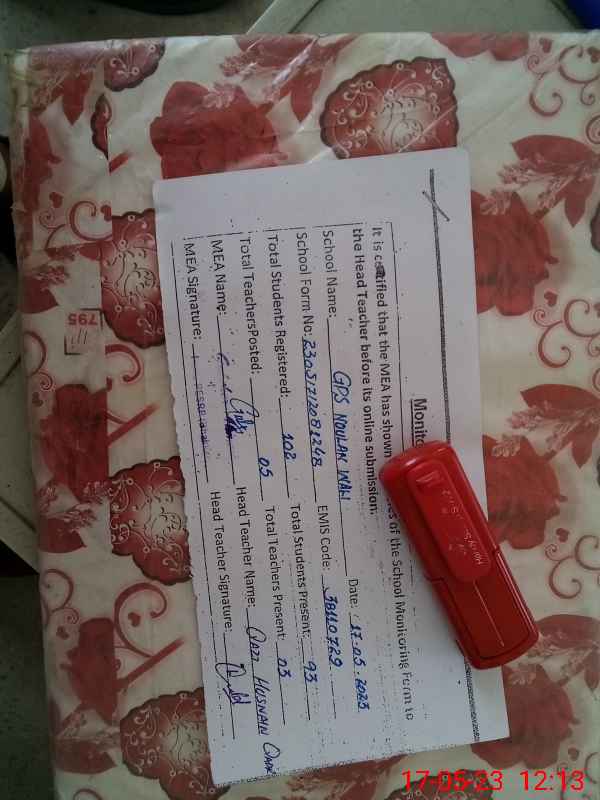 Monito
It is certified that the MEA has shown es of the School Monitoring Form to
the Head Teacher before its online submission.
School Name: GPS NOULAN WALI Date: 17.05.2023
School Form No: 2305171208 1248 EMIS Code: 38110729
Total Students Registered: 102 Total Students Present: 93
Total TeachersPosted: 05 Total Teachers Present: 03
MEA Name: Head Teacher Name: QAZI HUSNAIN
MEA Signature: Head Teacher Signature:
795
17-05-23 12:13